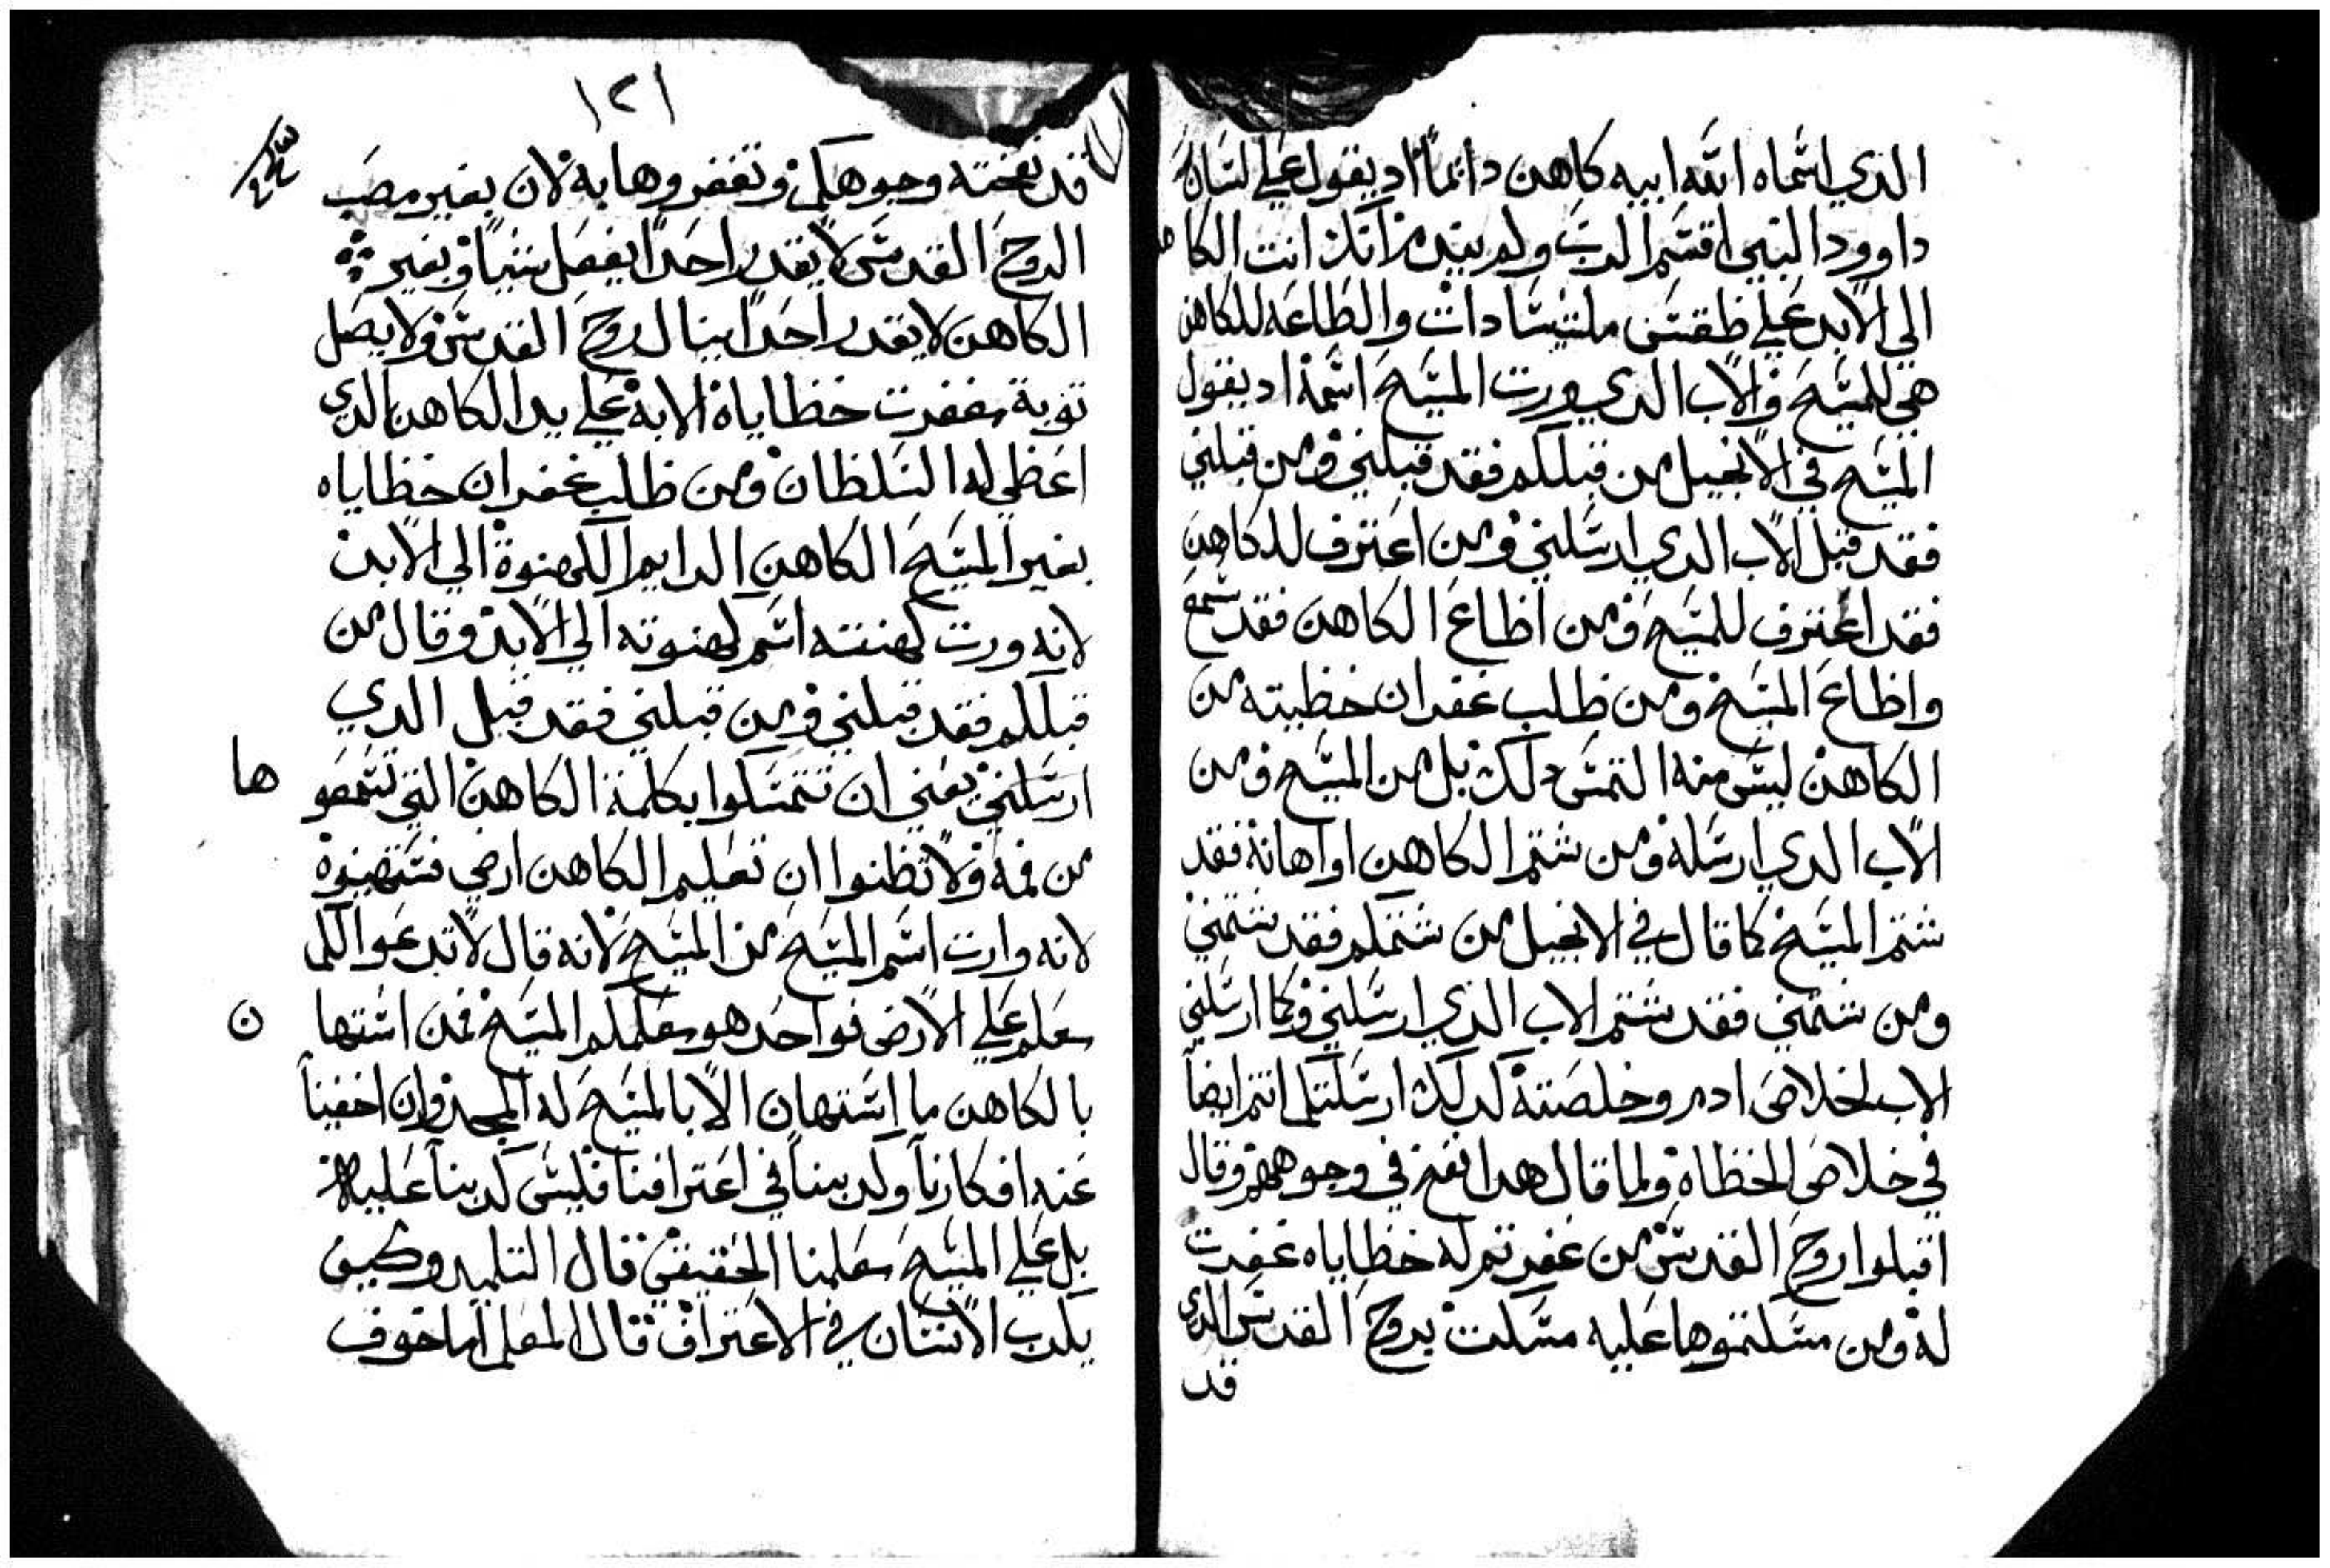 الدي اسماه الله ابيه كاهن دايماً اد يقول علي لسان
داوود النبي اقسم الرب ولم يندم انك انت الكا هن
الي الابد علي طقس ملشيسادات والطاعه للكاهن
هي للمسيح والاب الدي ورت المسيح اسمه اد يقول
المسيح في الانجيل من قبلكم فقد قبلني ومن قبلني
فقد قبل الاب الدي ارسلني ومن اعترف للكاهن
فقد اعترف للمسيح ومن اطاع الكاهن فقد سمع
واطاع المسيح ومن طلب غفران خطيته من
الكاهن ليس منه التمس دلك بل من المسيح ومن
الاب الدي ارسله ومن شتم الكاهن او اهانه فقد
شتم المسيح كما قال في الانجيل من شتمكم فقد شتمني
ومن شتمني فقد شتم الاب الذي ارسلني وكما ارسلني
الاب لخلاص ادم وخلصته كدلك ارسلتكم انتم ايضاً
في خلاص الخطاه ولما قال هدا نفخ في وجوههم وقال
اقبلوا روح القدس من غفرتم له خطاياه غفرت
له ومن مسكتموها عليه مسكت بروح القدس الدي
قد
١٢١
قد نفخته وجوهكم وتغفروها به لان بغير مصب
الروح القدس لا يقدر احداً يفعل شياً وبغير
الكاهن لا يقدر احداً ينال روح القدس ولا يصل
توبة مغفرت خطاياه الا به علي يد الكاهن الدي
اعطي له السلطان ومن طلب غفران خطاياه
بغير المسيح الكاهن الدايم الكهنوة الي الابد
لانه ورت كهنته اسم كهنوته الي الابد وقال من
قبلكم فقد قبلني ومن قبلني فقد قبل الدي
ارسلني يعني ان تتمسكوا بكلمة الكاهن التي تسمعو ها
من فمه ولا تظنوا ان تعليم الكاهن ارضي فتستهينوه
لانه وارت اسم المسيح من المسيح لانه قال لا تدعوا لكم
معلم علي الارض فواحد هو معلمكم المسيح فمن استها ن
بالكاهن ما استهان الا بالمسيح له المجد وان اخفينا
عنه افكارنا وكدبنا في اعترافنا فليس كدبنا عليه
بل علي المسيح معلمنا الحقيقي قال التلميد وكيف
يكدب الانسان في الاعتراف قال المعلم اما خوف